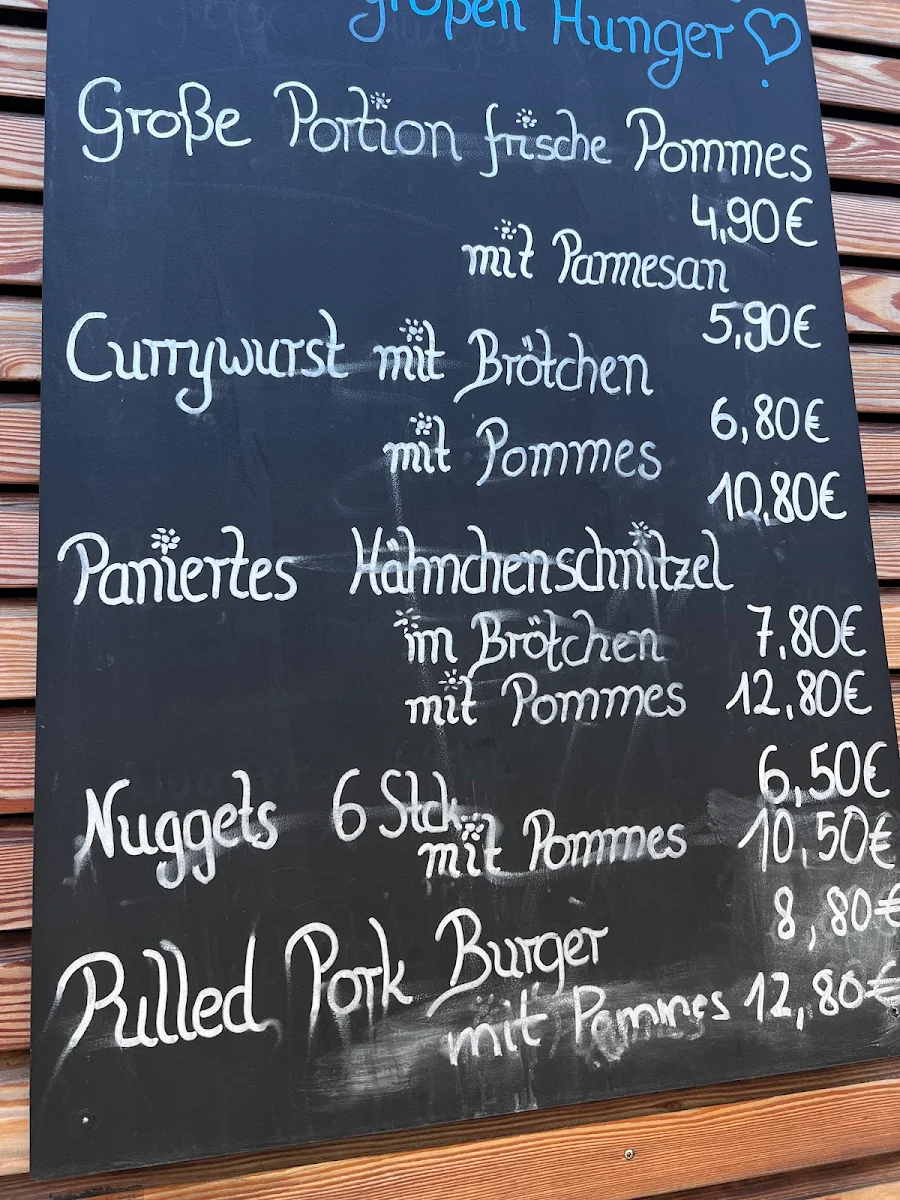 großen Hunger
Große Portion frische Pommes
4,90€
mit Parmesan
5,90€
Currywurst mit Brötchen
6,80€
mit Pommes
10,80€
Paniertes Hähnchenschnitzel
im Brötchen 7,80€
mit Pommes 12,80€
6,50€
Nuggets 6 Stck.
mit Pommes 10,50€
8,80€
Pulled Pork Burger
mit Pommes 12,80€